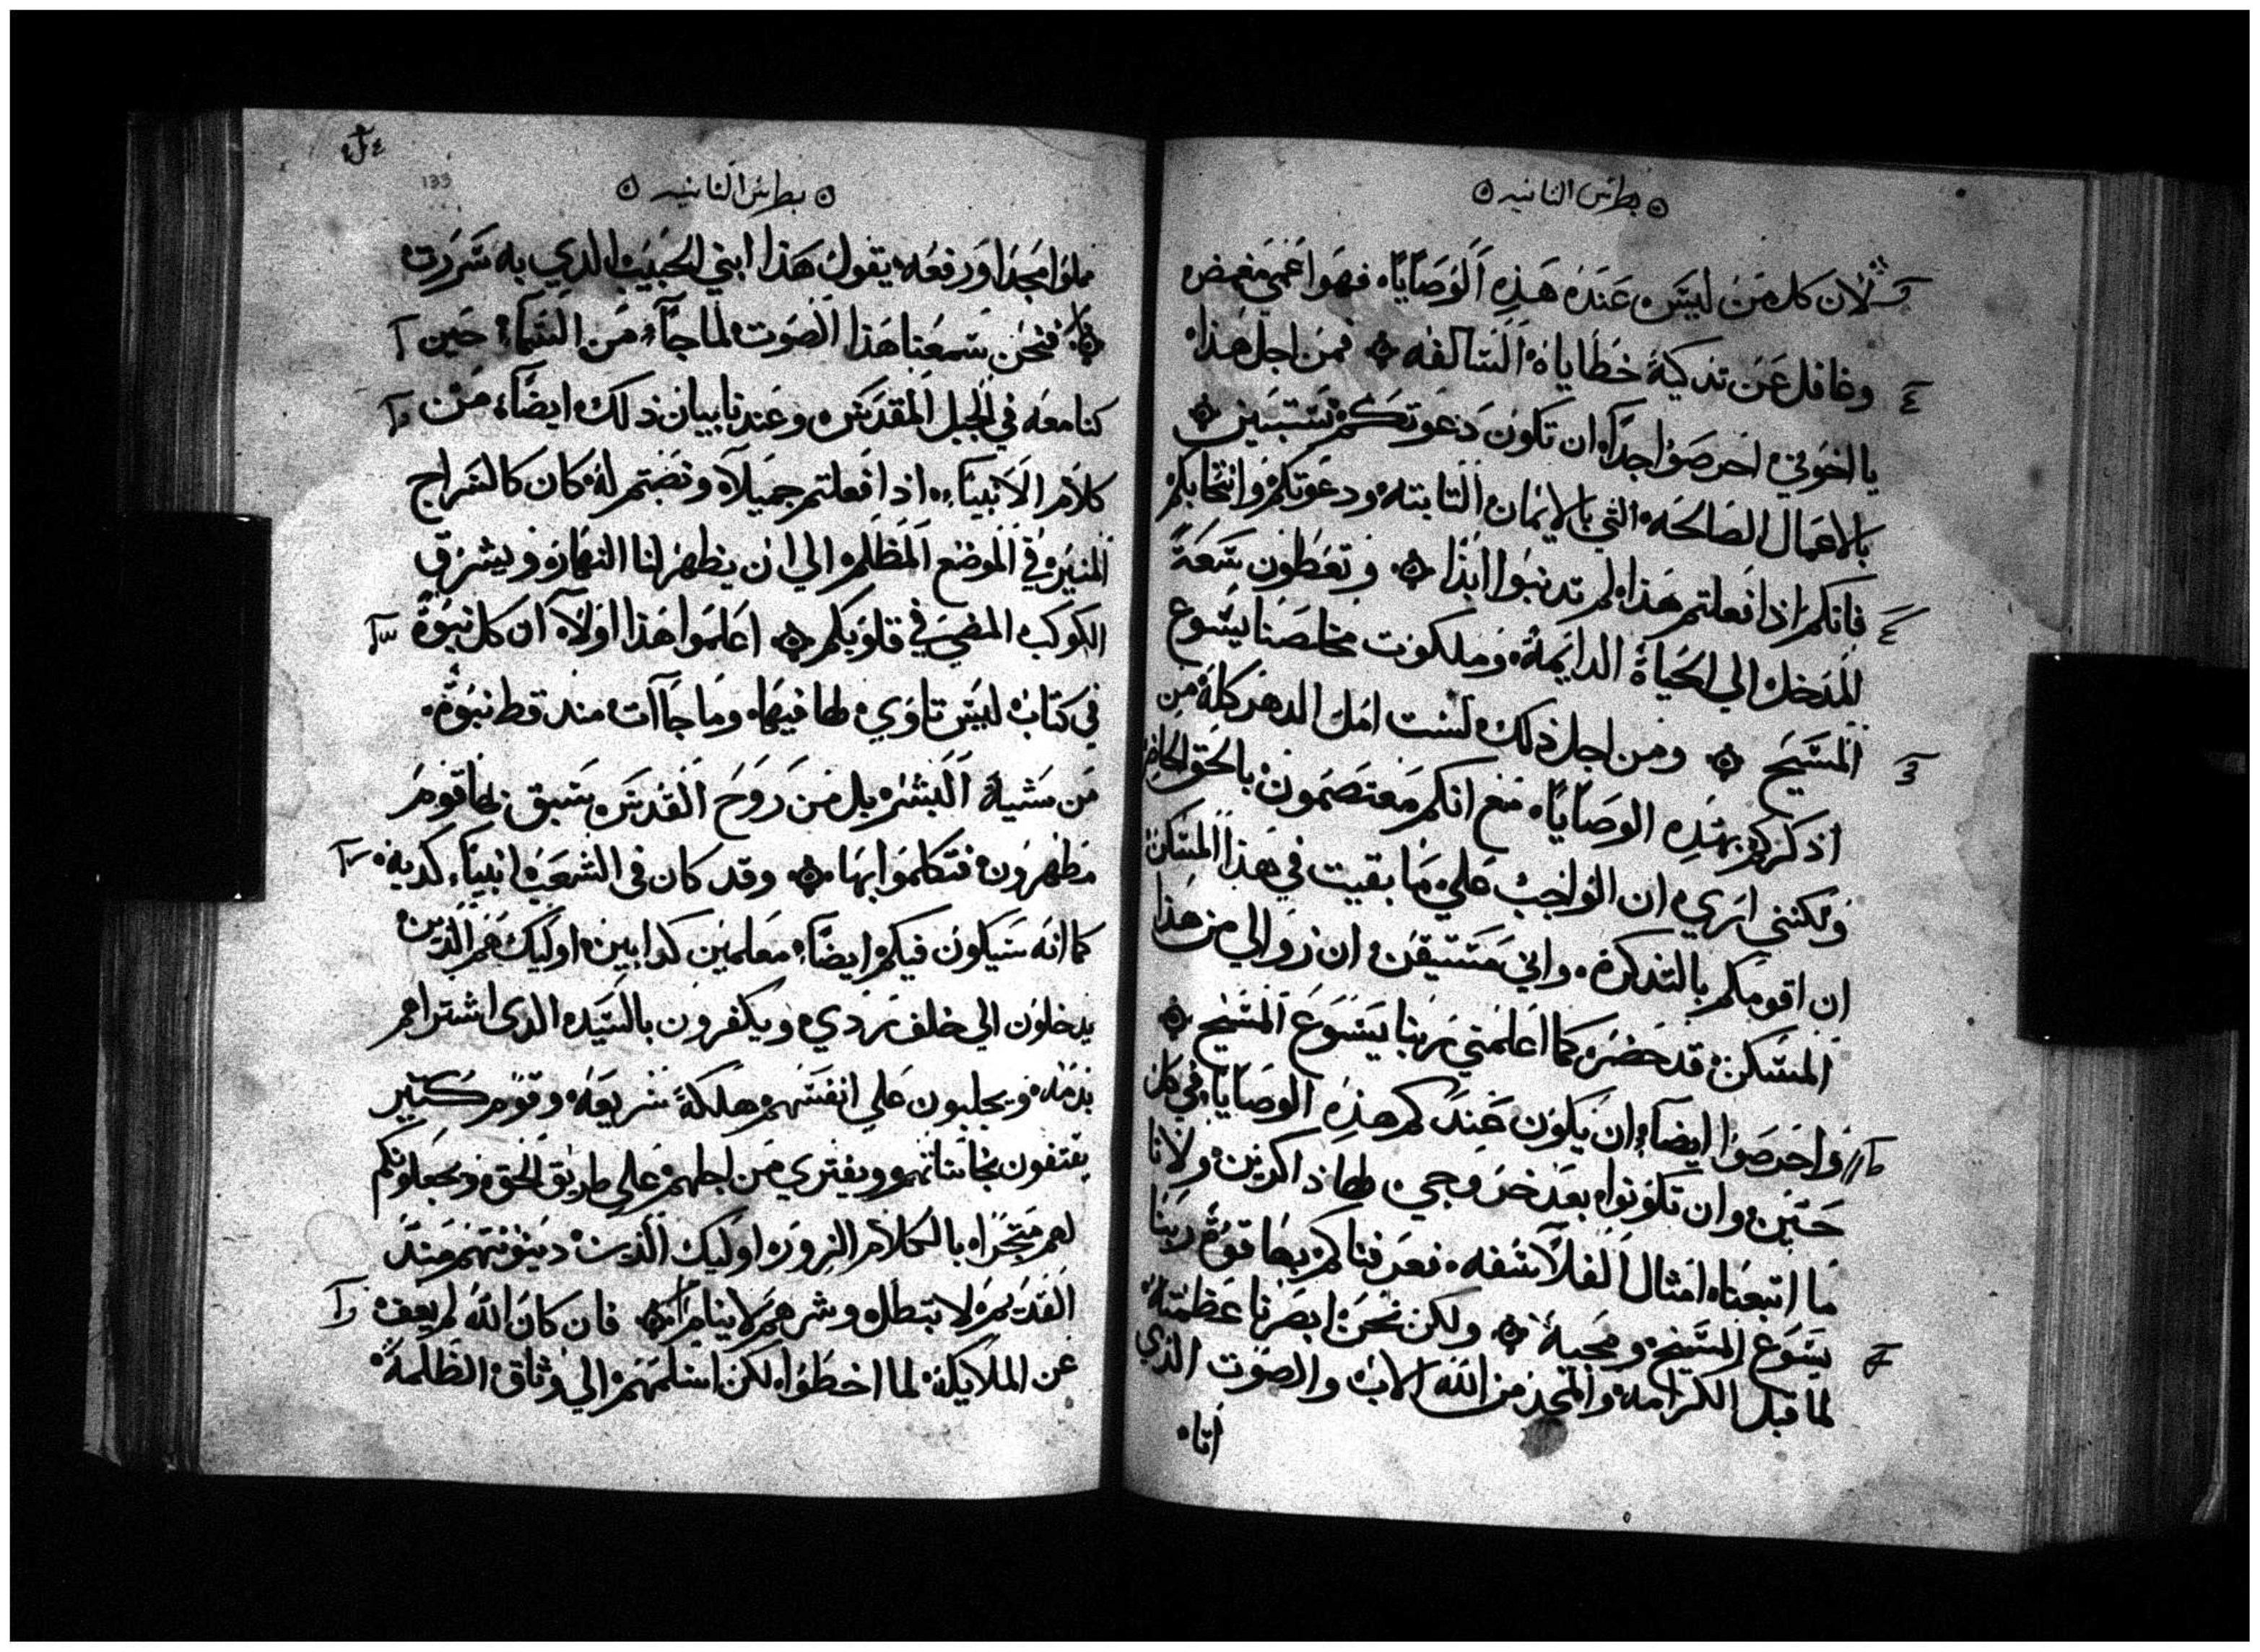 بطرس الثانيه
لان كل من ليس عنده هذه الوصايا فهو اعمي مغمض
وغافل عن تدكية خطاياه السالفه فمن اجل هذا
يا اخوتي احرصوا جدا ان تكون دعوتكم تستبين
بالاعمال الصالحه التي بالايمان الثابته ودعوتكم وانتخابكم
فانكم اذا فعلتم هذا لم تدنبوا ابدا وتعطون سعة
المدخل الي الحياة الدايمة وملكوت مخلصنا يسوع
المسيح ومن اجل ذلك لست امل الدهر كله من
اذكركم بهذه الوصايا مع انكم معتصمون بالحق الحاضر
ولكنني اري ان الواجب علي ما بقيت في هذا المسكن
ان اقومكم بالتدكرة واني مستيقن ان زوالي من هذا
المسكن قد حضر كما اعلمني ربنا يسوع المسيح
واحرصوا ايضا ان يكون عندكم هذه الوصايا في كل
حين وان تكونوا بعد خروجي لها ذاكرين ولانا
ما اتبعنا امثال الفلاسفه فعرفناكم بها قوة ربنا
يسوع المسيح ومجيه ولكن نحن ابصرنا عظمته
لما قبل الكرامه والمجد من الله الاب والصوت الذي
اتا
بطرس الثانيه
133
مملوا مجدا ورفعه يقول هذا ابني الحبيب الدي به سررت
فنحن سمعنا هذا الصوت لما جاء من السماء حين
كنا معه في الجبل المقدس وعندنا بيان ذلك ايضا من
كلام الانبياء اذا فعلتم جميلا ونصتم له كان كالسراج
المنير في الموضع المظلم الي ان يظهر لنا النهار ويشرق
الكوكب المضي في قلوبكم اعلموا هذا اولا ان كل نبوة
في كتاب ليس تاوي لها فيها وما جاات منذ قط نبوة
من مشية البشر بل من روح القدس سبق بها قوم
مظهرون فتكلموا بها وقد كان في الشعب انبياء كدبة
كما انه سيكون فيكم ايضا معلمين كدابين اوليك هم الذين
يدخلون الي خلف ردي ويكفرون بالسيد الدى اشتراهم
بدمه ويجلبون علي انفسهم هلكة سريعة وقوم كثير
يقتفون نجاساتهم ويفتري من اجلهم علي طريق الحق ويجعلونكم
لهم متجرا بالكلام الزور اوليك الذين دينونتهم منذ
القديم لا تبطل وشرهم لا ينام فان كان الله لم يعف
عن الملايكة لما اخطوا لكن اسلمهم الي وثاق الظلمة